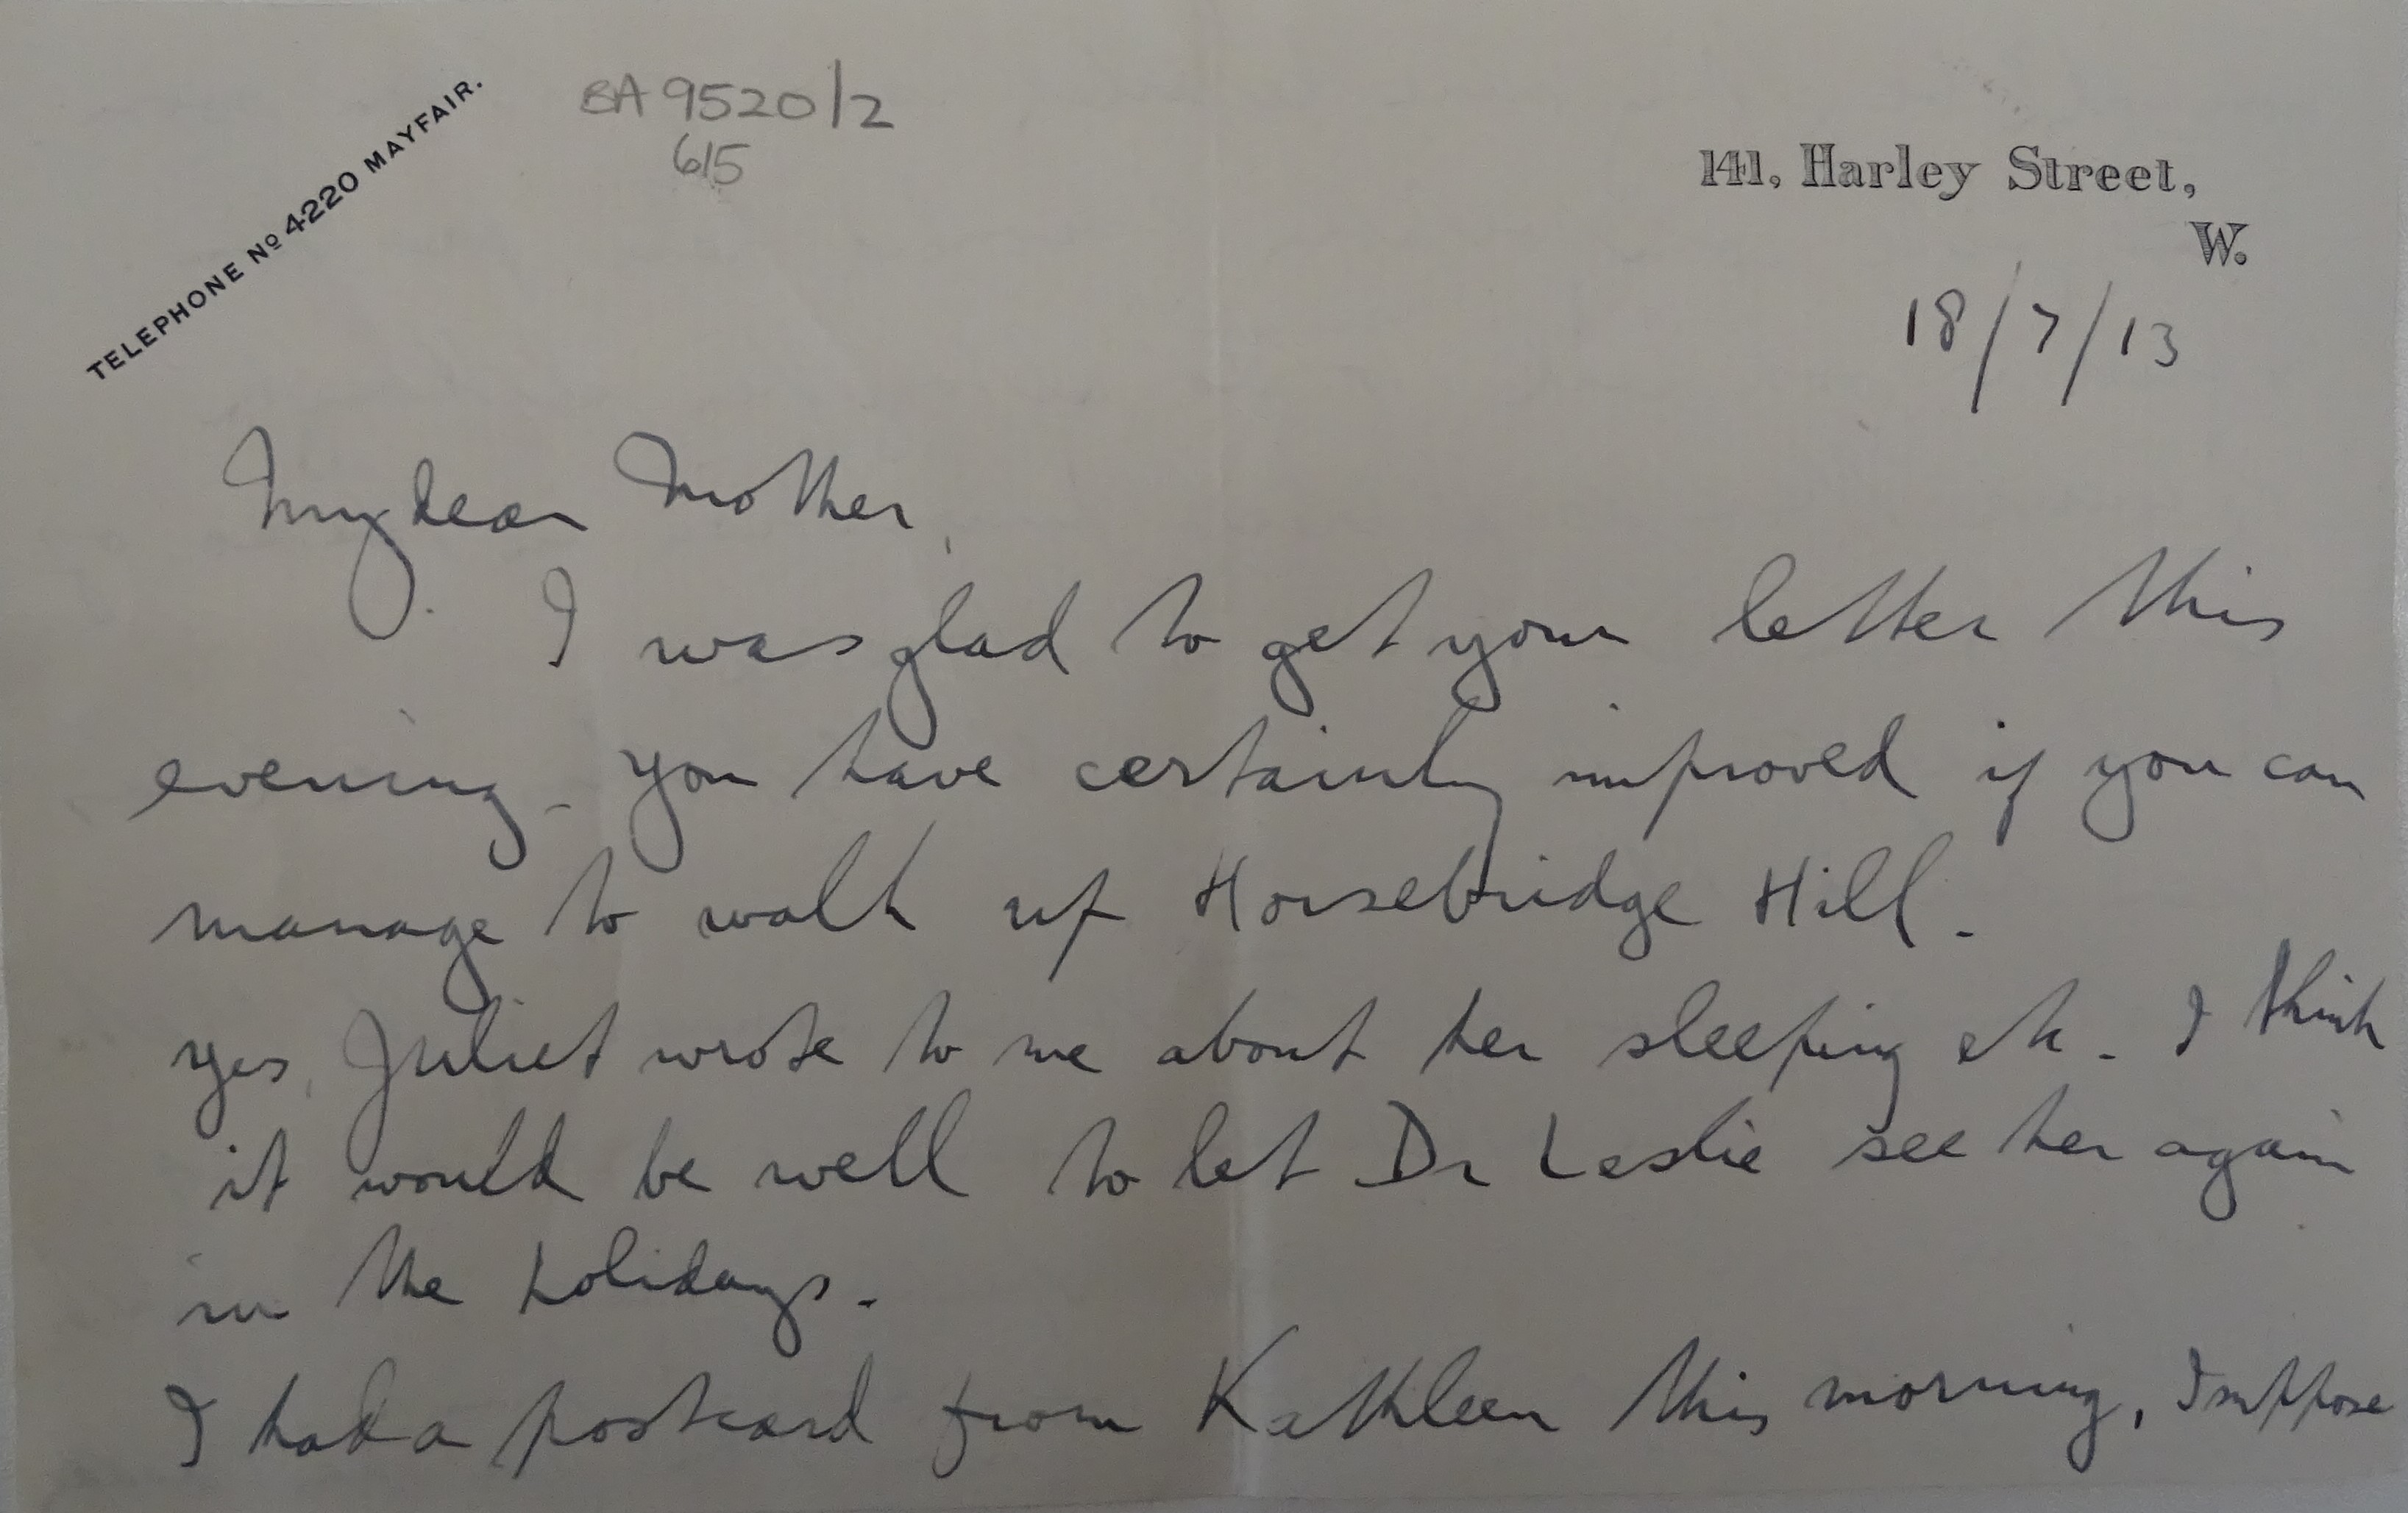 TELEPHONE Nº 4220 MAYFAIR.
BA 9520/2
615
141, Harley Street,
W.
18/7/13
My dear Mother,
I was glad to get your letter this
evening. You have certainly improved if you can
manage to walk up Horsebridge Hill.
Yes, Juliet wrote to me about her sleeping etc. I think
it would be well to let Dr Leslie see her again
in the holidays.
I had a postcard from Kathleen this morning, I suppose